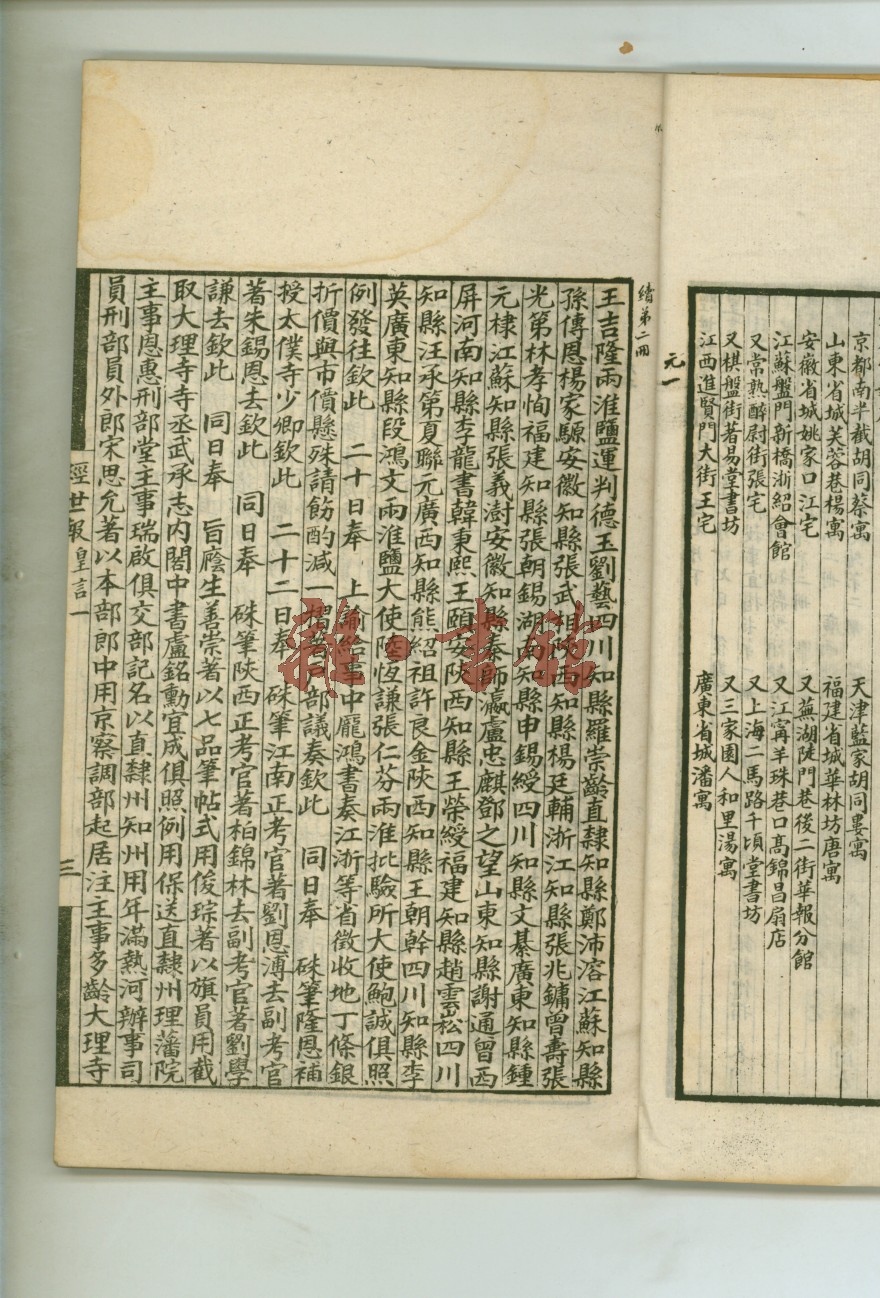 京都南半截胡同蔡寓
天津藍家胡同婁寓
山東省城芙蓉巷楊寓
福建省城華林坊唐寓
安徽省城姚家口江宅
又蕪湖陡門巷後二街華報分館
江蘇盤門新橋浙紹會館
又江甯羊珠巷口高錦昌扇店
又常熟醉尉街張宅
又上海二馬路千頃堂書坊
又棋盤街著易堂書坊
又三家園人和里湯寓
江西進賢門大街王宅
廣東省城潘寓
元一
續第二冊
王吉隆兩淮鹽運判德玉劉藝四川知縣羅崇齡直隸知縣鄭沛溶江蘇知縣
孫傳恩楊家驟安徽知縣張武相陝西知縣楊廷輔浙江知縣張兆鏞曾壽張
光第林孝恂福建知縣張朝錫湖南知縣申錫綬四川知縣文綦廣東知縣鍾
元棣江蘇知縣張義澍安徽知縣秦師瀛盧忠麒鄧之望山東知縣謝通曾西
屏河南知縣李龍書韓秉熙王頤安陝西知縣王榮綬福建知縣趙雲崧四川
知縣汪承第夏聯元廣西知縣熊紹祖許良金陝西知縣王朝幹四川知縣李
英廣東知縣段鴻文兩淮鹽大使陸恆謙張仁芬兩淮批驗所大使鮑誠俱照
例發往欽此 二十日奉 上諭給事中龎鴻書奏江浙等省徵收地丁條銀
折價與市價懸殊請飭酌減一摺著戶部議奏欽此 同日奉 硃筆隆恩補
授太僕寺少卿欽此 二十二日奉 硃筆江南正考官著劉恩溥去副考官
著朱錫恩去欽此 同日奉 硃筆陝西正考官著柏錦林去副考官著劉學
謙去欽此 同日奉 旨廕生善崇著以七品筆帖式用俊琮著以旗員用截
取大理寺寺丞武承志內閣中書盧銘勳宜成俱照例用保送直隸州理藩院
主事恩惠刑部堂主事瑞啟俱交部記名以直隸州知州用年滿熱河辦事司
員刑部員外郎宋思允著以本部郎中用京察調部起居注主事多齡大理寺
經世報 皇言一
三
雜·書館